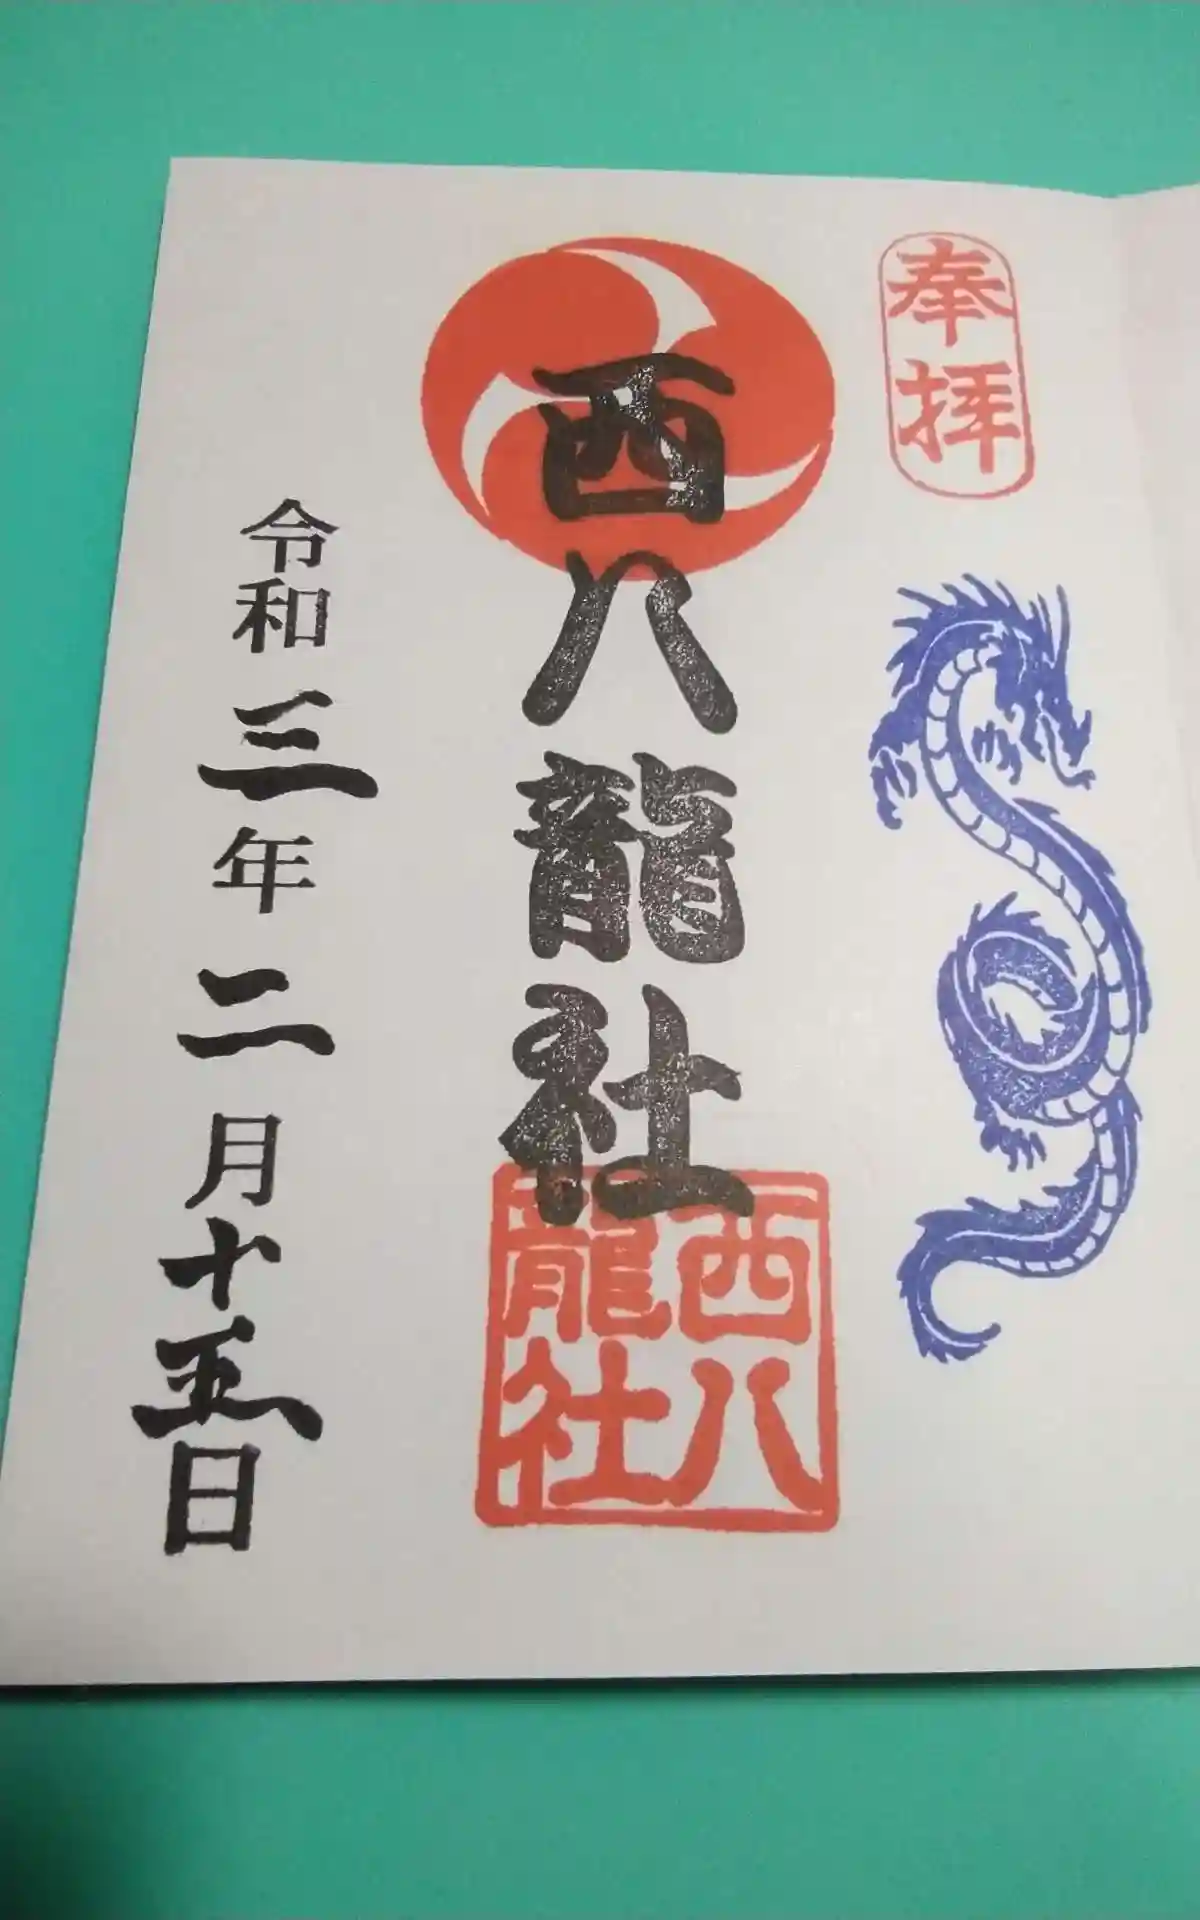 奉拝
西八龍社
西八龍社
令和三年二月十五日